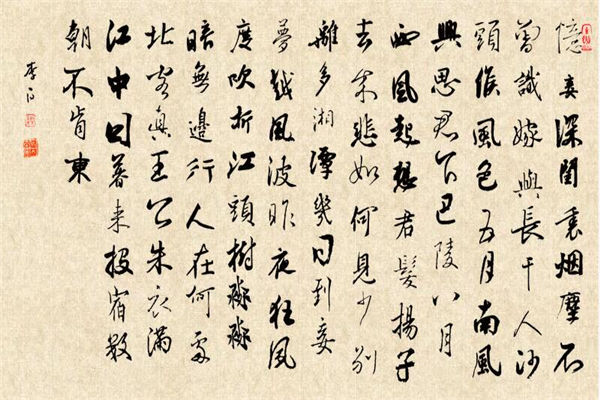 憶妾深閨裏烟塵不
曾識嫁與長干人沙
頭候風色五月南風
興思君下巴陵八月
西風起想君髮揚子
去來悲如何見少別
離多湘潭幾日到妾
夢越風波昨夜狂風
度吹折江頭樹淼淼
暗無邊行人在何處
北客真王公朱衣滿
江中日暮來投宿數
朝不肯東
李白